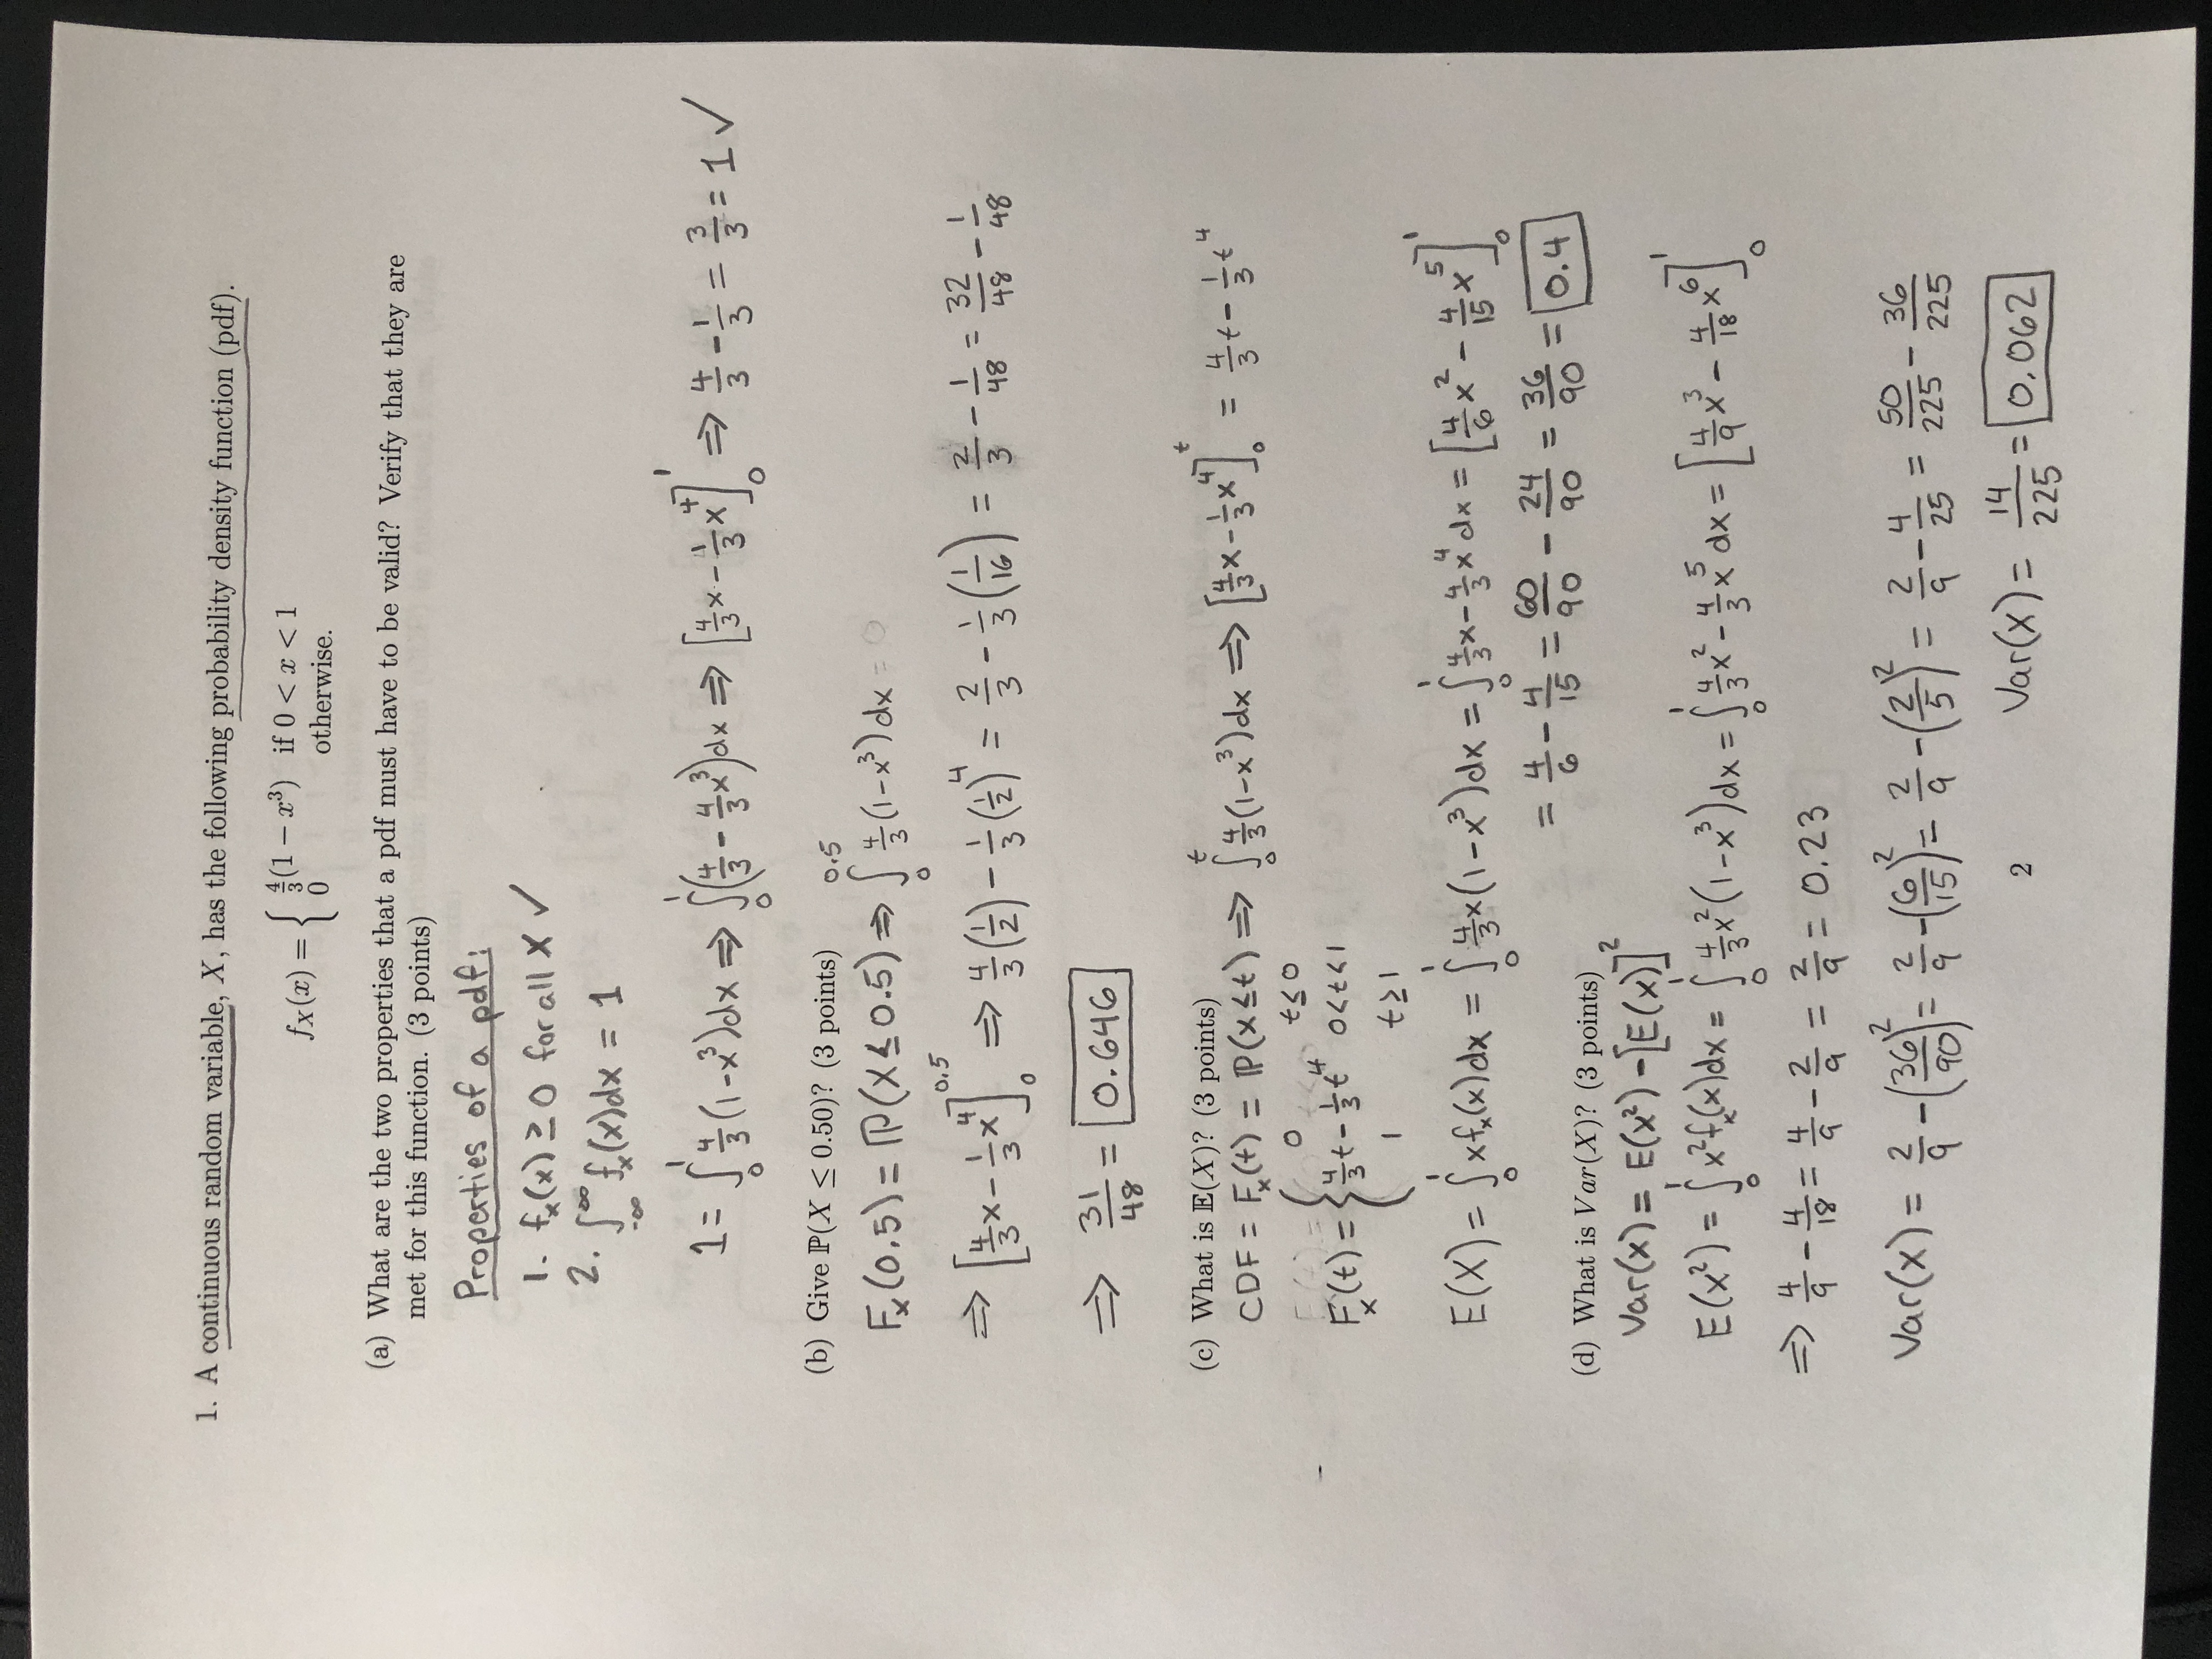 1. A continuous random variable, X, has the following probability density function (pdf).
fX(x) = { 4/3(1 − x³) if 0 < x < 1
0 otherwise.
(a) What are the two properties that a pdf must have to be valid? Verify that they are
met for this function. (3 points)
Properties of a pdf:
1. fx(x) ≥ 0 for all X ✓
2. ∫_-∞^∞ fx(x)dx = 1
1 = ∫_0^1 4/3(1-x³)dx ⇒ ∫_0^1 (4/3 - 4/3x³)dx ⇒ [4/3x - 1/3x⁴]_0^1 ⇒ 4/3 - 1/3 = 3/3 = 1 ✓
(b) Give ℙ(X ≤ 0.50)? (3 points)
Fx(0.5) = ℙ(X ≤ 0.5) ⇒ ∫_0^0.5 4/3(1-x³)dx = 0
⇒ [4/3x - 1/3x⁴]_0^0.5 ⇒ 4/3(1/2) - 1/3(1/2)⁴ = 2/3 - 1/3(1/16) = 2/3 - 1/48 = 32/48 - 1/48
⇒ 31/48 = 0.646
(c) What is 𝔼(X)? (3 points)
CDF = Fx(t) = ℙ(x ≤ t) ⇒ ∫_0^t 4/3(1-x³)dx ⇒ [4/3x - 1/3x⁴]_0^t = 4/3t - 1/3t⁴
Fx(t) = { 0 t ≤ 0
4/3t - 1/3t⁴ 0<t<1
1 t ≥ 1
E(X) = ∫_0^1 xfx(x)dx = ∫_0^1 4/3x(1-x³)dx = ∫_0^1 4/3x - 4/3x⁴ dx = [4/6x² - 4/15x⁵]_0^1
= 4/6 - 4/15 = 60/90 - 24/90 = 36/90 = 0.4
(d) What is Var(X)? (3 points)
Var(x) = E(x²) - [E(x)]²
E(x²) = ∫_0^1 x²fx(x)dx = ∫_0^1 4/3x²(1-x³)dx = ∫_0^1 4/3x² - 4/3x⁵ dx = [4/9x³ - 4/18x⁶]_0^1
⇒ 4/9 - 4/18 = 4/9 - 2/9 = 2/9 = 0.23
Var(x) = 2/9 - (36/90)² = 2/9 - (6/15)² = 2/9 - (2/5)² = 2/9 - 4/25 = 50/225 - 36/225
Var(x) = 14/225 = 0.062
2